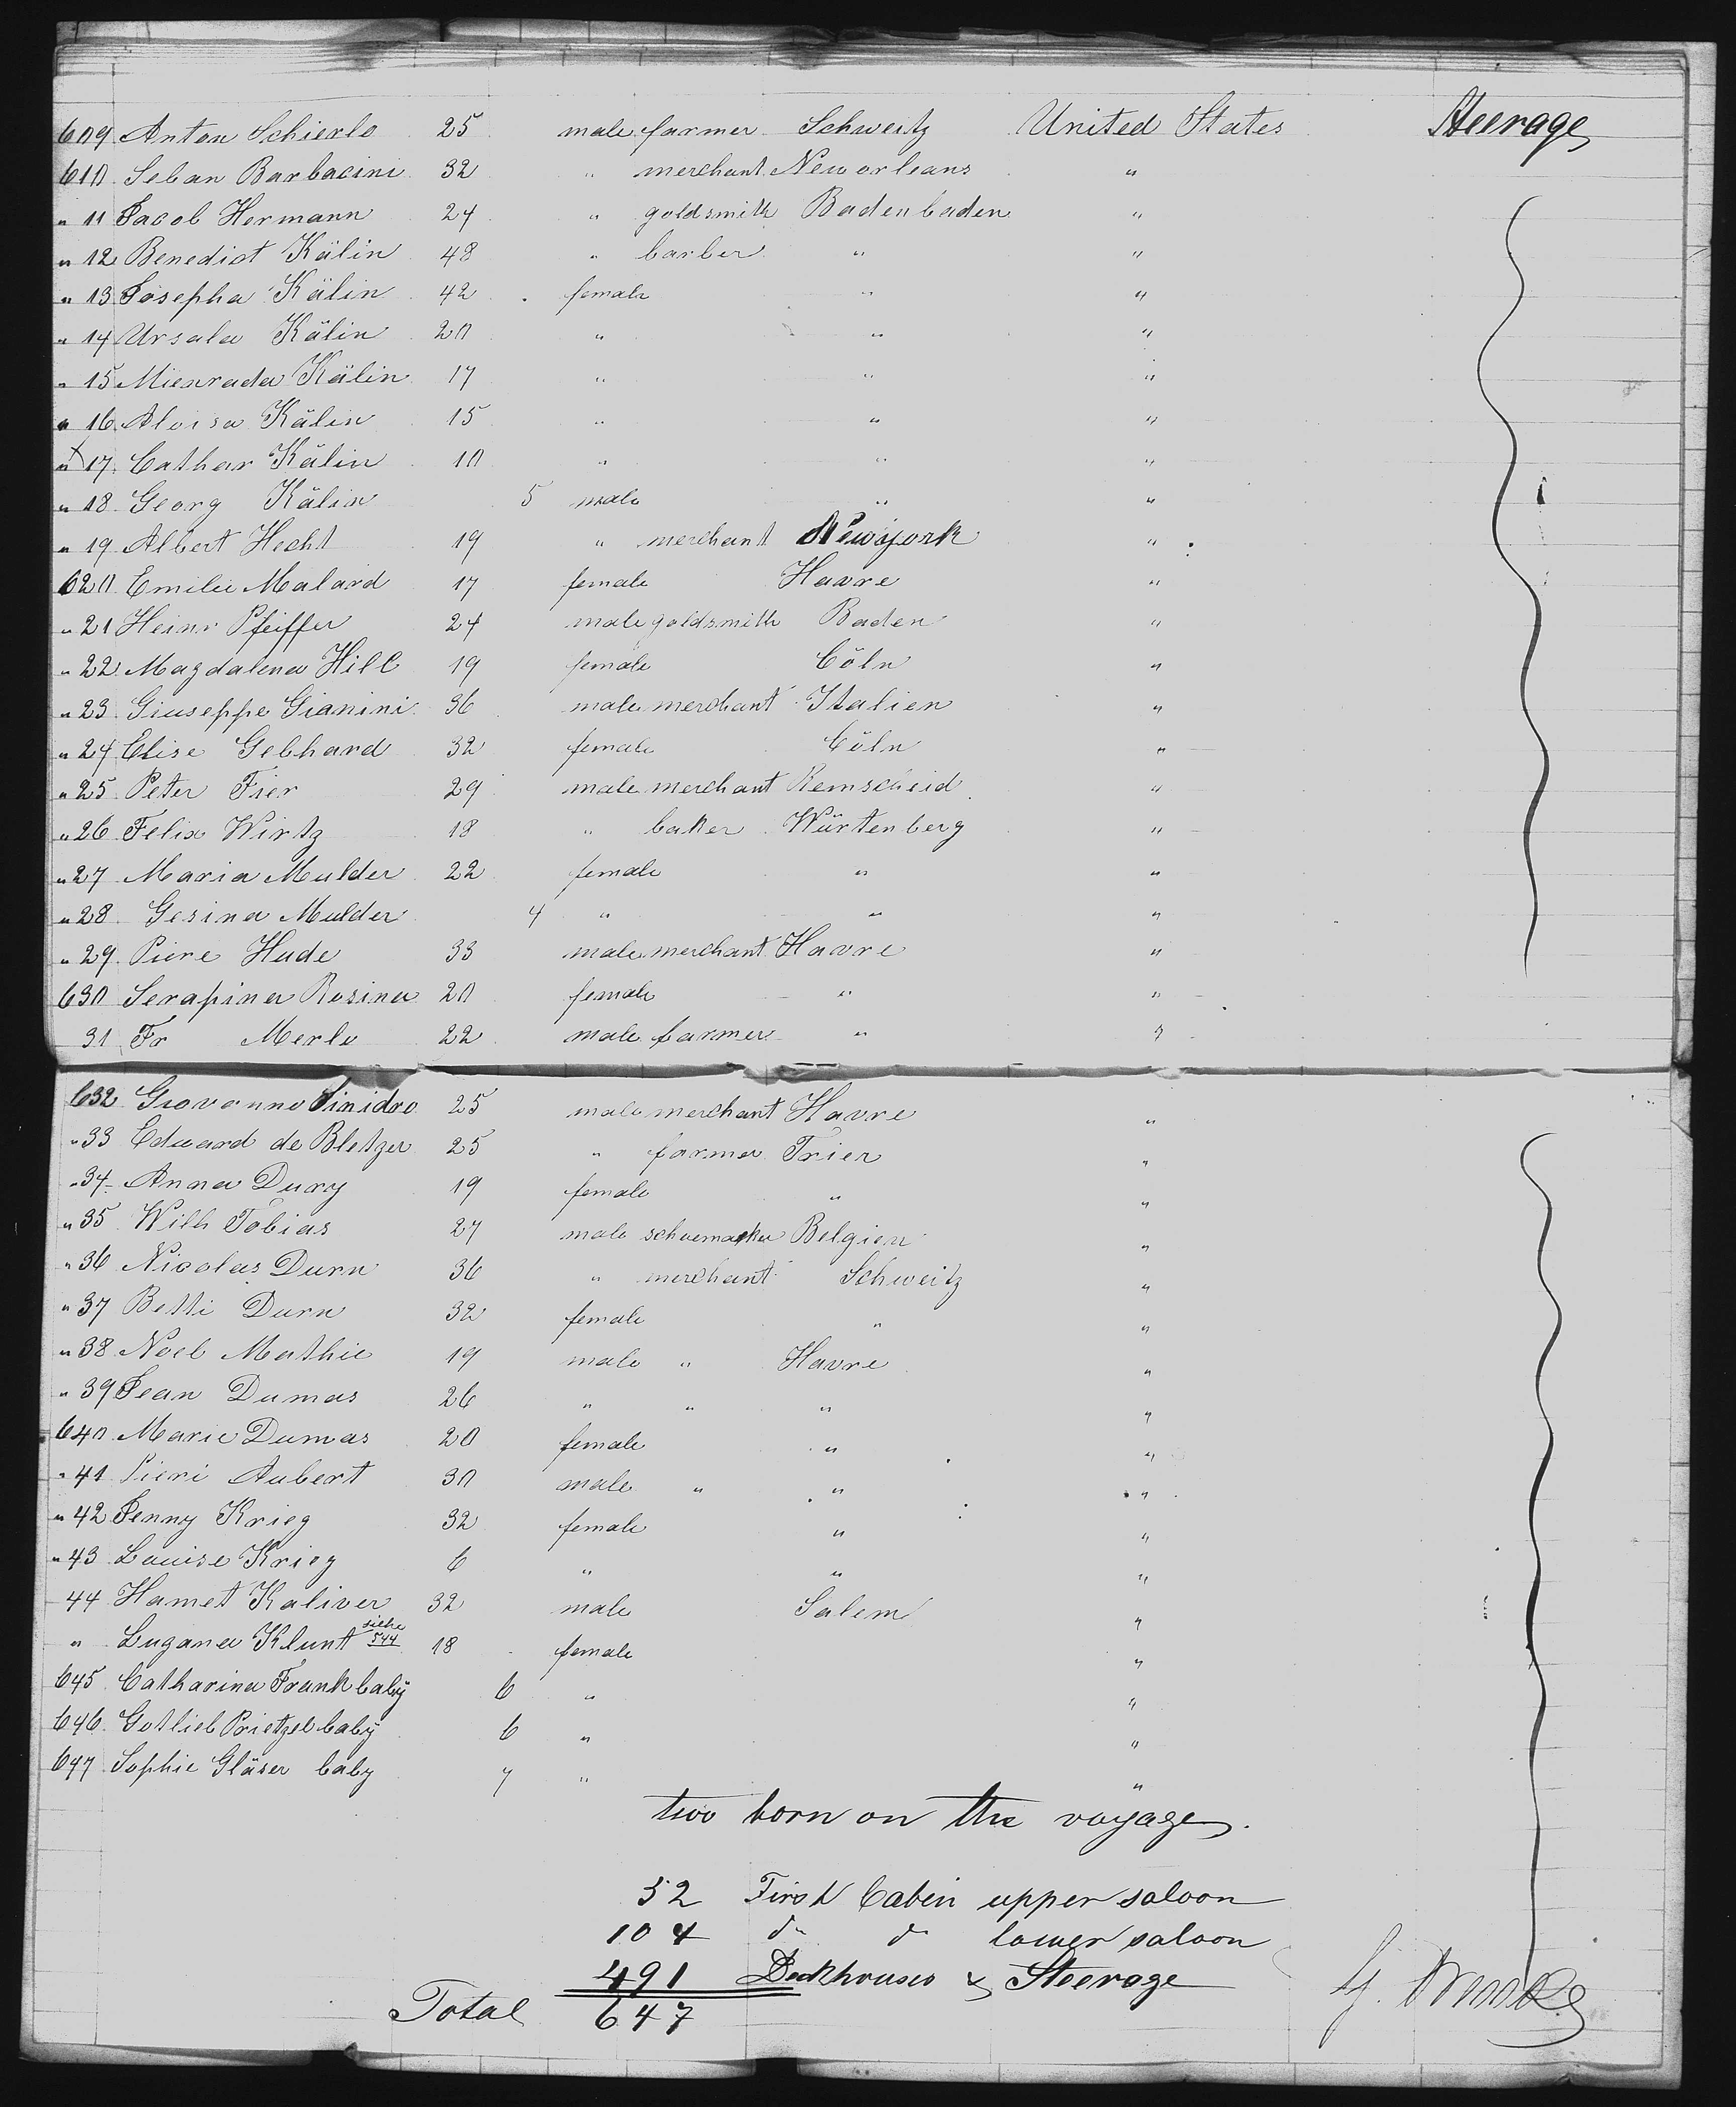 609 Anton Schierle 25 male farmer Schweitz United States Steerage
610 Seban Barbacini 32 " merchant New orleans "
" 11 Jacob Hermann 24 " goldsmith Baden baden "
" 12 Benedict Kälin 48 " barber " "
" 13 Josepha Kälin 42 female " "
" 14 Ursala Kälin 20 " " "
" 15 Mienrada Kälin 17 " " "
" 16 Aloisa Kälin 15 " " "
" 17 Cathar Kälin 10 " " "
" 18 Georg Kälin 5 male " "
" 19 Albert Hecht 19 " merchant Newyork "
620 Emilie Malard 17 female Havre "
" 21 Heinr Pfeiffer 24 male goldsmith Baden "
" 22 Magdalena Hill 19 female Cöln "
" 23 Giuseppe Gianini 36 male merchant Italien "
" 24 Elise Gebhard 32 female Cöln "
" 25 Peter Fier 29 male merchant Remscheid "
" 26 Felix Wirtz 18 " baker Würtenberg "
" 27 Maria Mulder 22 female " "
" 28 Gesina Mulder 4 " " "
" 29 Piere Hude 33 male merchant Havre "
630 Serapina Rosina 20 female " "
31 Fr Merle 22 male farmer " "
632 Giovanno Sinidro 25 male merchant Havre "
" 33 Eduard de Bletzer 25 " farmer Trier "
" 34 Anna Dury 19 female " "
" 35 Wilh Tobias 27 male schoemacker Belgien "
" 36 Nicolas Durn 36 " merchant Schweitz "
" 37 Betti Durn 32 female " "
" 38 Noel Mathie 19 male " Havre "
" 39 Jean Dumas 26 " " " "
640 Marie Dumas 20 female " "
" 41 Pieri Aubert 30 male " " "
" 42 Jenny Krieg 32 female " "
" 43 Louise Krieg 6 " " "
44 Hamet Kaliver 32 male Salem "
" Lugana Klunt siehe 544 18 female "
645 Catharina Frank baby 6 " "
646 Gotlieb Prietzel baby 6 " "
647 Sophie Gläser baby 7 " "
two born on the voyage.
52 First Cabin upper saloon
104 do do lower saloon
491 Deckhouses & Steerage
Total 647